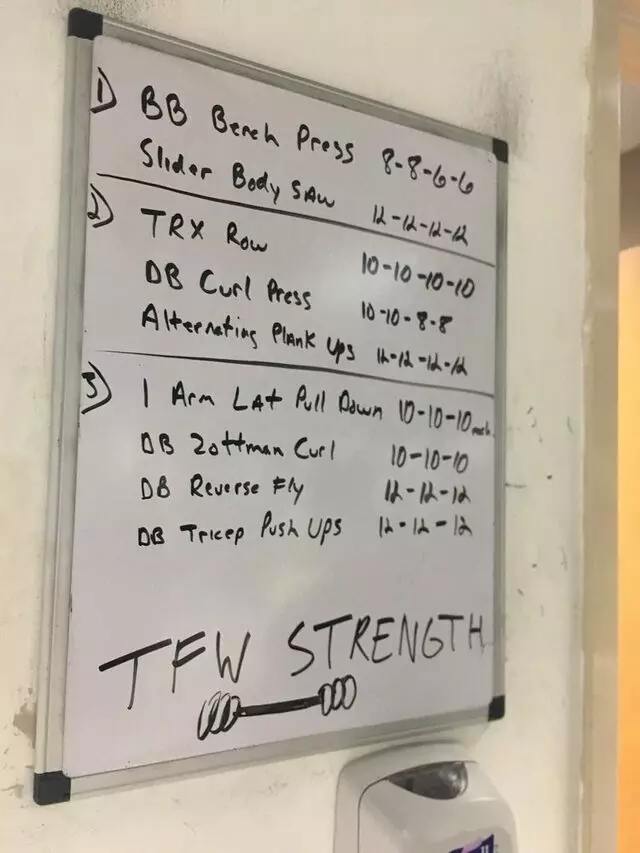 1) BB Bench Press 8-8-6-6
Slider Body SAW 12-12-12-12
2) TRX Row 10-10-10-10
DB Curl Press 10-10-8-8
Alternating Plank Ups 12-12-12-12
3) 1 Arm Lat Pull Down 10-10-10 each
DB Zottman Curl 10-10-10
DB Reverse Fly 12-12-12
DB Tricep Push Ups 12-12-12
TFW STRENGTH